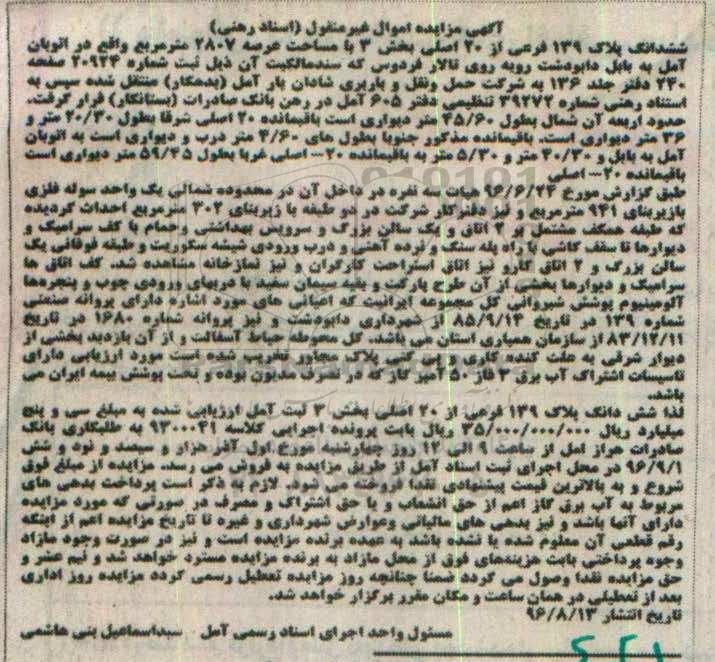 آگهی مزایده اموال غیرمنقول (اسناد رهنی)
ششدانگ پلاک ۱۳۹ فرعی از ۲۰ اصلی بخش ۳ با مساحت عرصه ۲۸۰۷ مترمربع واقع در اتوبان
آمل به بابل دابودشت روبه روی تالار فردوس که سندمالکیت آن ذیل ثبت شماره ۲۰۹۲۴ صفحه
۲۴۰ دفتر جلد ۱۳۶ به شرکت حمل ونقل و باربری شادان بار آمل (بدهکار) منتقل شده سپس به
استناد رهنی شماره ۳۹۲۷۲ تنظیمی دفتر ۶۰۵ آمل در رهن بانک صادرات (بستانکار) قرار گرفت.
حدود اربعه آن شمال بطول ۴۵/۶۰ متر دیواری است باقیمانده ۲۰ اصلی شرقا بطول ۲۰/۳۰ متر و
۳۶ متر دیواری است. باقیمانده مذکور جنوبا بطول های ۴/۶۰ متر درب و دیواری است به اتوبان
آمل به بابل و ۳۰/۳۰ متر و ۵/۳۰ متر به باقیمانده ۲۰- اصلی غربا بطول ۵۹/۴۵ متر دیواری است
باقیمانده ۲۰- اصلی
طبق گزارش مورخ ۹۶/۶/۲۴ هیات سه نفره در داخل آن در محدوده شمالی یک واحد سوله فلزی
بازیربنای ۹۴۱ مترمربع و نیز دفترکار شرکت در دو طبقه با زیربنای ۳۰۲ مترمربع احداث گردیده
که طبقه همکف مشتمل بر ۲ اتاق و یک سالن بزرگ و سرویس بهداشتی وحمام با کف سرامیک و
دیوارها تا سقف کاشی با راه پله سنگ و نرده آهنی و درب ورودی شیشه سکوریت و طبقه فوقانی یک
سالن بزرگ و ۲ اتاق کارو نیز اتاق استراحت کارگران و نیز نمازخانه مشاهده شد. کف اتاق ها
سرامیک و دیوارها بخشی از آن طرح پارکت و بقیه سیمان سفید با دربهای ورودی چوب و پنجره‌ها
آلومینیوم پوشش شیروانی کل مجموعه ایرانیت که اعیانی های مورد اشاره دارای پروانه صنعتی
شماره ۱۳۹ در تاریخ ۸۵/۹/۱۴ شهرداری دابودشت و نیز پروانه شماره ۱۶۸۰ در تاریخ
۸۳/۱۲/۱۱ از سازمان همیاری استان می باشد. کل محوطه حیاط آسفالت و از آن بازدید بخشی از
دیوار شرقی به علت کنده کاری و پی کنی پلاک مجاور تخریب شده است مورد ارزیابی دارای
تاسیسات اشتراک آب برق ۳ فاز ۵۰ آمپر گاز که در تصرف مدیون بوده و تحت پوشش بیمه ایران می
باشد.
لذا شش دانگ پلاک ۱۳۹ فرعی از ۲۰ اصلی بخش ۳ ثبت آمل ارزیابی شده به مبلغ سی و پنج
میلیارد ریال ۳۵/۰۰۰/۰۰۰/۰۰۰ ریال بابت پرونده اجرایی کلاسه ۹۳۰۰۰۴۱ به طلبکاری بانک
صادرات هراز امل از ساعت ۹ الی ۱۲ روز چهارشنبه مورخ اول آذر هزار و سیصد و نود و شش
۹۶/۹/۱ در محل اجرای ثبت اسناد آمل از طریق مزایده به فروش می رسد. مزایده از مبلغ فوق
شروع و به بالاترین قیمت پیشنهادی نقدا فروخته می شود. لازم به ذکر است پرداخت بدهی های
مربوط به آب برق گاز اعم از حق انشعاب و یا حق اشتراک و مصرف در صورتی که مورد مزایده
دارای آنها باشد و نیز بدهی های مالیاتی وعوارض شهرداری و غیره تا تاریخ مزایده اعم از اینکه
رقم قطعی آن معلوم شده یا نشده باشد به عهده برنده مزایده است و نیز در صورت وجود مازاد
وجوه پرداختی بابت هزینه‌های فوق از محل مازاد به برنده مزایده مسترد خواهد شد و نیم عشر و
حق مزایده نقدا وصول می گردد ضمنا چنانچه روز مزایده تعطیل رسمی گردد مزایده روز اداری
بعد از تعطیلی در همان ساعت و مکان مقرر برگزار خواهد شد.
تاریخ انتشار ۹۶/۸/۱۳
مسئول واحد اجرای اسناد رسمی آمل سیداسماعیل بنی هاشمی